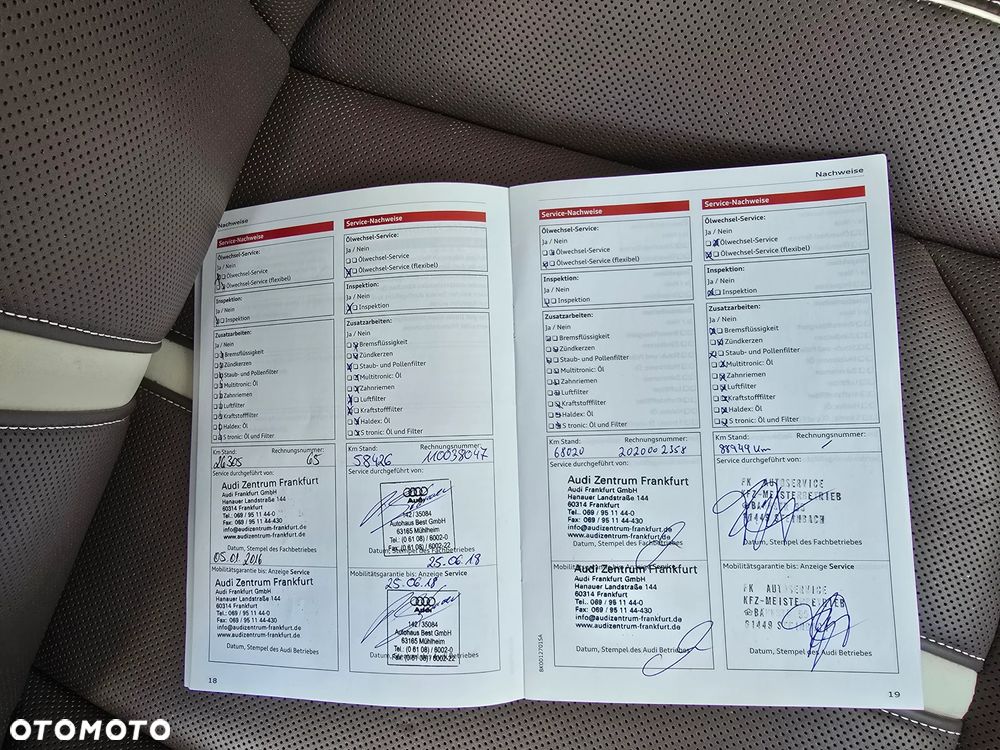 Nachweise
Service-Nachweise
Ölwechsel-Service:
Ja / Nein
Ölwechsel-Service
Ölwechsel-Service (flexibel)
Inspektion:
Ja / Nein
Inspektion
Zusatzarbeiten:
Ja / Nein
Bremsflüssigkeit
Zündkerzen
Staub- und Pollenfilter
Multitronic: Öl
Zahnriemen
Luftfilter
Kraftstofffilter
Haldex: Öl
S tronic: Öl und Filter
Km Stand: Rechnungsnummer:
26305 65
Service durchgeführt von:
Audi Zentrum Frankfurt
Audi Frankfurt GmbH
Hanauer Landstraße 144
60314 Frankfurt
Tel.: 069 / 95 11 44-0
Fax: 069 / 95 11 44-430
info@audizentrum-frankfurt.de
www.audizentrum-frankfurt.de
Datum, Stempel des Fachbetriebes
05.01.2016
Mobilitätsgarantie bis: Anzeige Service
Audi Zentrum Frankfurt
Audi Frankfurt GmbH
Hanauer Landstraße 144
60314 Frankfurt
Tel.: 069 / 95 11 44-0
Fax: 069 / 95 11 44-430
info@audizentrum-frankfurt.de
www.audizentrum-frankfurt.de
Datum, Stempel des Audi Betriebes
18
Service-Nachweise
Ölwechsel-Service:
Ja / Nein
Ölwechsel-Service
Ölwechsel-Service (flexibel)
Inspektion:
Ja / Nein
Inspektion
Zusatzarbeiten:
Ja / Nein
Bremsflüssigkeit
Zündkerzen
Staub- und Pollenfilter
Multitronic: Öl
Zahnriemen
Luftfilter
Kraftstofffilter
Haldex: Öl
S tronic: Öl und Filter
Km Stand: Rechnungsnummer:
58426 110038047
Service durchgeführt von:
Audi
142 / 35084
Autohaus Best GmbH
63165 Mühlheim
Tel.: (0 61 08) / 6002-0
Fax: (0 61 08) / 6002-22
Datum, Stempel des Fachbetriebes
25.06.18
Mobilitätsgarantie bis: Anzeige Service
25.06.18
Audi
142 / 35084
Autohaus Best GmbH
63165 Mühlheim
Tel.: (0 61 08) / 6002-0
Fax: (0 61 08) / 6002-22
Datum, Stempel des Audi Betriebes
Nachweise
Service-Nachweise
Ölwechsel-Service:
Ja / Nein
Ölwechsel-Service
Ölwechsel-Service (flexibel)
Inspektion:
Ja / Nein
Inspektion
Zusatzarbeiten:
Ja / Nein
Bremsflüssigkeit
Zündkerzen
Staub- und Pollenfilter
Multitronic: Öl
Zahnriemen
Luftfilter
Kraftstofffilter
Haldex: Öl
S tronic: Öl und Filter
Km Stand: Rechnungsnummer:
68020 202000 2358
Service durchgeführt von:
Audi Zentrum Frankfurt
Audi Frankfurt GmbH
Hanauer Landstraße 144
60314 Frankfurt
Tel.: 069 / 95 11 44-0
Fax: 069 / 95 11 44-430
info@audizentrum-frankfurt.de
www.audizentrum-frankfurt.de
Datum, Stempel des Fachbetriebes
Mobilitätsgarantie bis: Anzeige Service
Audi Zentrum Frankfurt
Audi Frankfurt GmbH
Hanauer Landstraße 144
60314 Frankfurt
Tel.: 069 / 95 11 44-0
Fax: 069 / 95 11 44-430
info@audizentrum-frankfurt.de
www.audizentrum-frankfurt.de
Datum, Stempel des Audi Betriebes
BK0012701SA
Service-Nachweise
Ölwechsel-Service:
Ja / Nein
Ölwechsel-Service
Ölwechsel-Service (flexibel)
Inspektion:
Ja / Nein
Inspektion
Zusatzarbeiten:
Ja / Nein
Bremsflüssigkeit
Zündkerzen
Staub- und Pollenfilter
Multitronic: Öl
Zahnriemen
Luftfilter
Kraftstofffilter
Haldex: Öl
S tronic: Öl und Filter
Km Stand: Rechnungsnummer:
88949 Km
Service durchgeführt von:
FK AUTOSERVICE
KFZ-MEISTERBETRIEB
61449 STEINBACH
Datum, Stempel des Fachbetriebes
Mobilitätsgarantie bis: Anzeige Service
FK AUTOSERVICE
KFZ-MEISTERBETRIEB
61449
Datum, Stempel des Audi Betriebes
19
OTOMOTO